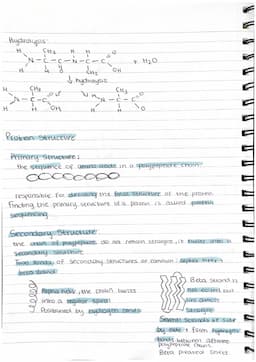 Hydrolysis:
H CH3 H H O
N-C-C-N-C-C + H2O
H H O CH3 OH
↓ hydrolysis
H CH3 O H H O
N-C-C N-C-C
H H OH H CH3
Protein Structure
Primary Structure:
the sequence of amino acids in a polypeptide chain
responsible for deciding the final structure of the protein.
Finding the primary structure of a protein is called protein
sequencing
Secondary Structure:
the chain of polypeptide do not remain straight, it twists into a
secondary structure
Two kinds of secondary structures are common: alpha helix,
beta strand
Alpha helix, the chain twists
into a regular spiral
Maintained by hydrogen bonds
Beta strand is
not coiled but
lies almost
straight
Several strands lie side
by side & form hydrogen
bonds between different
polypeptide chains
Beta pleated sheets